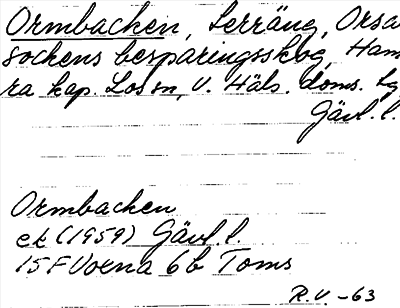 Ormbacken, terräng, Orsa
sockens besparingsskog, Ham
ra kap. Los sn, V. Häls. doms. tg
Gävl. l.
Ormbacken
ek (1959) Gävl. l.
15F Voxna 6b Toms
R.V. -63